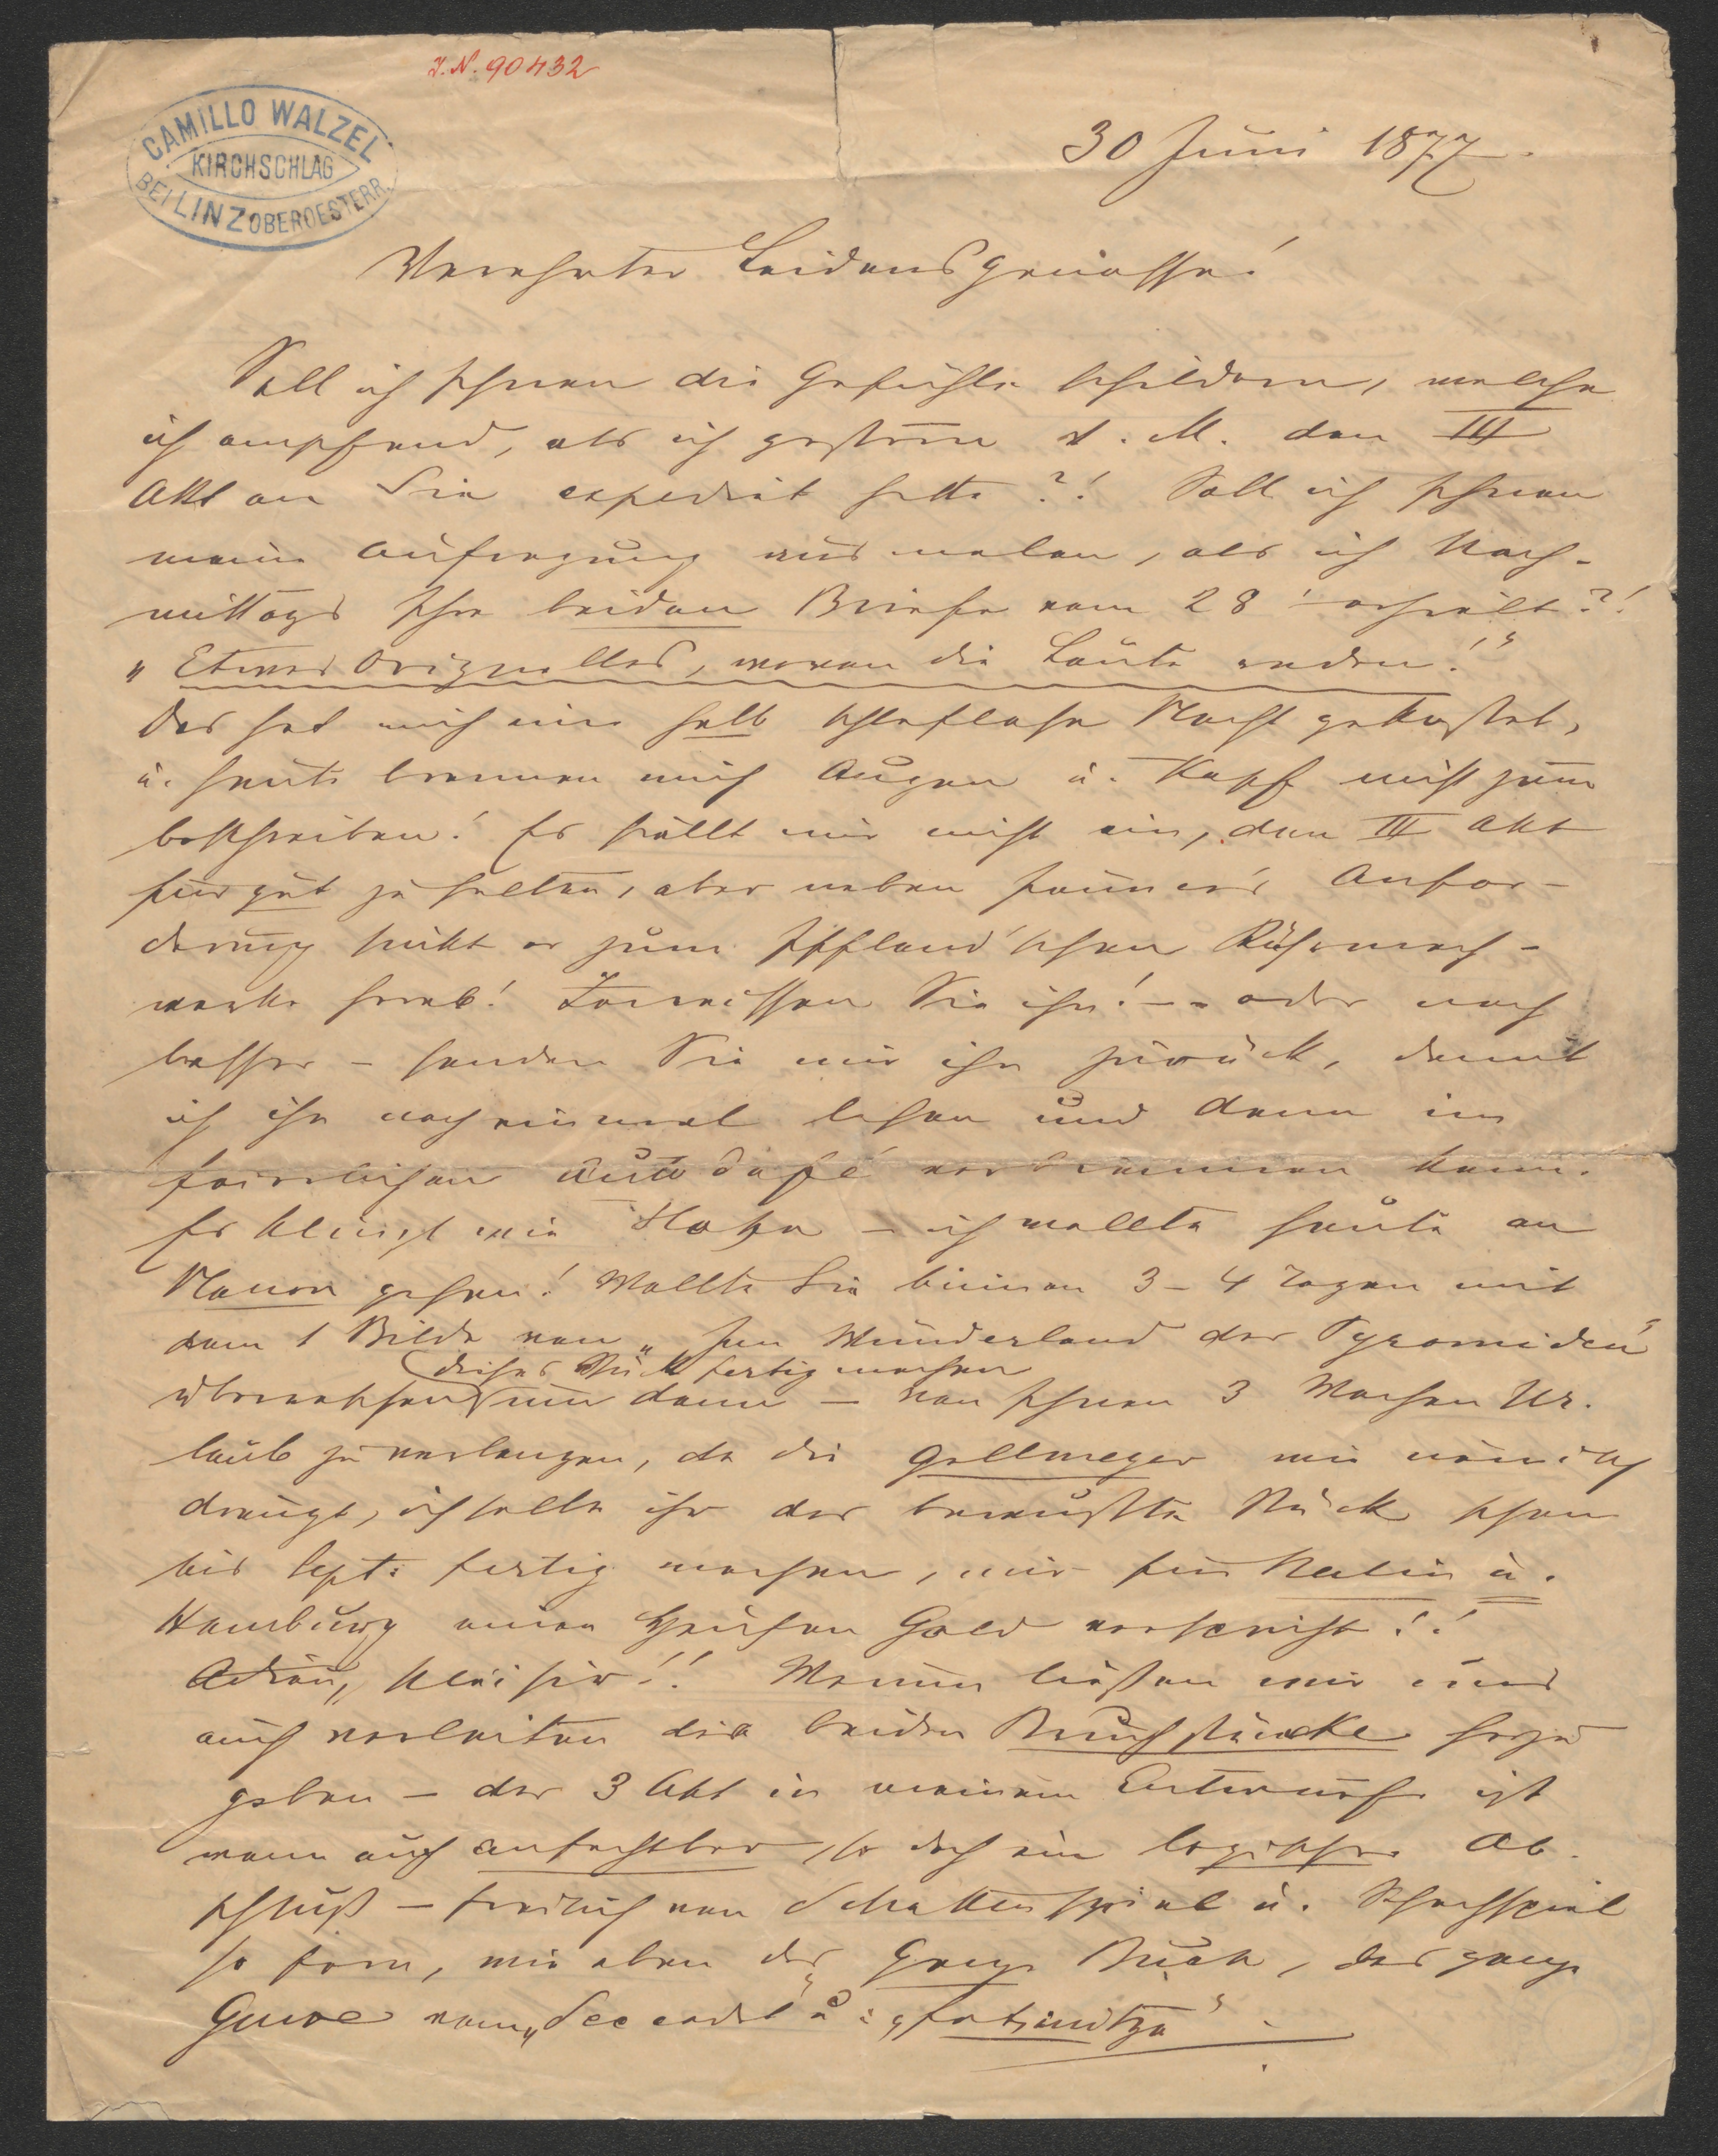 I. N. 90432
CAMILLO WALZEL
KIRCHSCHLAG
BEI LINZ OBEROESTERR.
30 Juni 1877.
Verehrter Leidensgenosse!
Soll ich Ihnen die Gefühle schildern, welche
ich empfand, als ich gestern d. M. den III
Akt an Sie expedirt hatte?! Soll ich Ihnen
meine Aufregung ausmalen, als ich Nach-
mittags Ihre beiden Briefe vom 28 erhielt?!
"Etwas Originelles, wovon die Leute reden!"
Das hat mich eine halb schlaflose Nacht gekostet,
u. heute brennen mich Augen u. Kopf nicht zum
beschreiben! Es fällt mir nicht ein, den III Akt
für gut zu halten, aber neben jener Anfor-
derung sinkt er zum Iffland'schen Rührmach-
werke herab! Zerreissen Sie ihn! -- oder noch
besser - senden Sie mir ihn zurück, damit
ich ihn noch einmal lesen und dann im
feierlichen Autodafé verbrennen kann.
Es klingt wie Hohn - ich wollte heute an
Manon gehen! Wollte Sie binnen 3-4 Tagen mit
dem 1 Bilde von "Im Wunderland der Pyramiden"
dieses Stück fertig machen
überraschen um dann - von Ihnen 3 Wochen Ur-
laub zu verlangen, da die Gallmeyer mich
drängt, ich solle ihr das bewußte Stück schon
bis Sept. fertig machen, mir für Berlin u.
Hamburg einen Haufen Geld verspricht!!
Adieu, plaisir!! Warum ließen wir uns
auch verleiten die beiden Bruchstücke herzu
geben - der 3 Akt in meinem Entwurfe ist
wenn auch anfechtbar, so doch ein logischer Ab-
schluß - freilich von Schattenspiel u. Schachspiel
so fern, wie eben das ganze Buch, das ganze
Genre vom "Seecadet" u: "Fatinitza" -